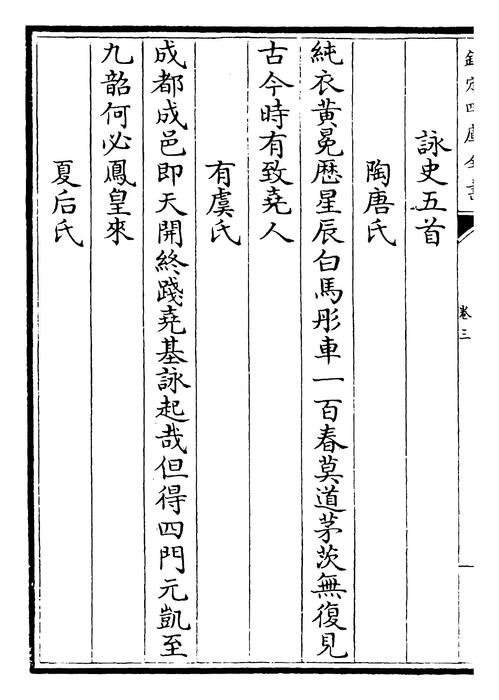 欽定四庫全書
卷三
詠史五首
陶唐氏
純衣黃冕歷星辰白馬彤車一百春莫道茅茨無復見
古今時有致堯人
有虞氏
成都成邑即天開終踐堯基詠起哉但得四門元凱至
九韶何必鳳皇來
夏后氏